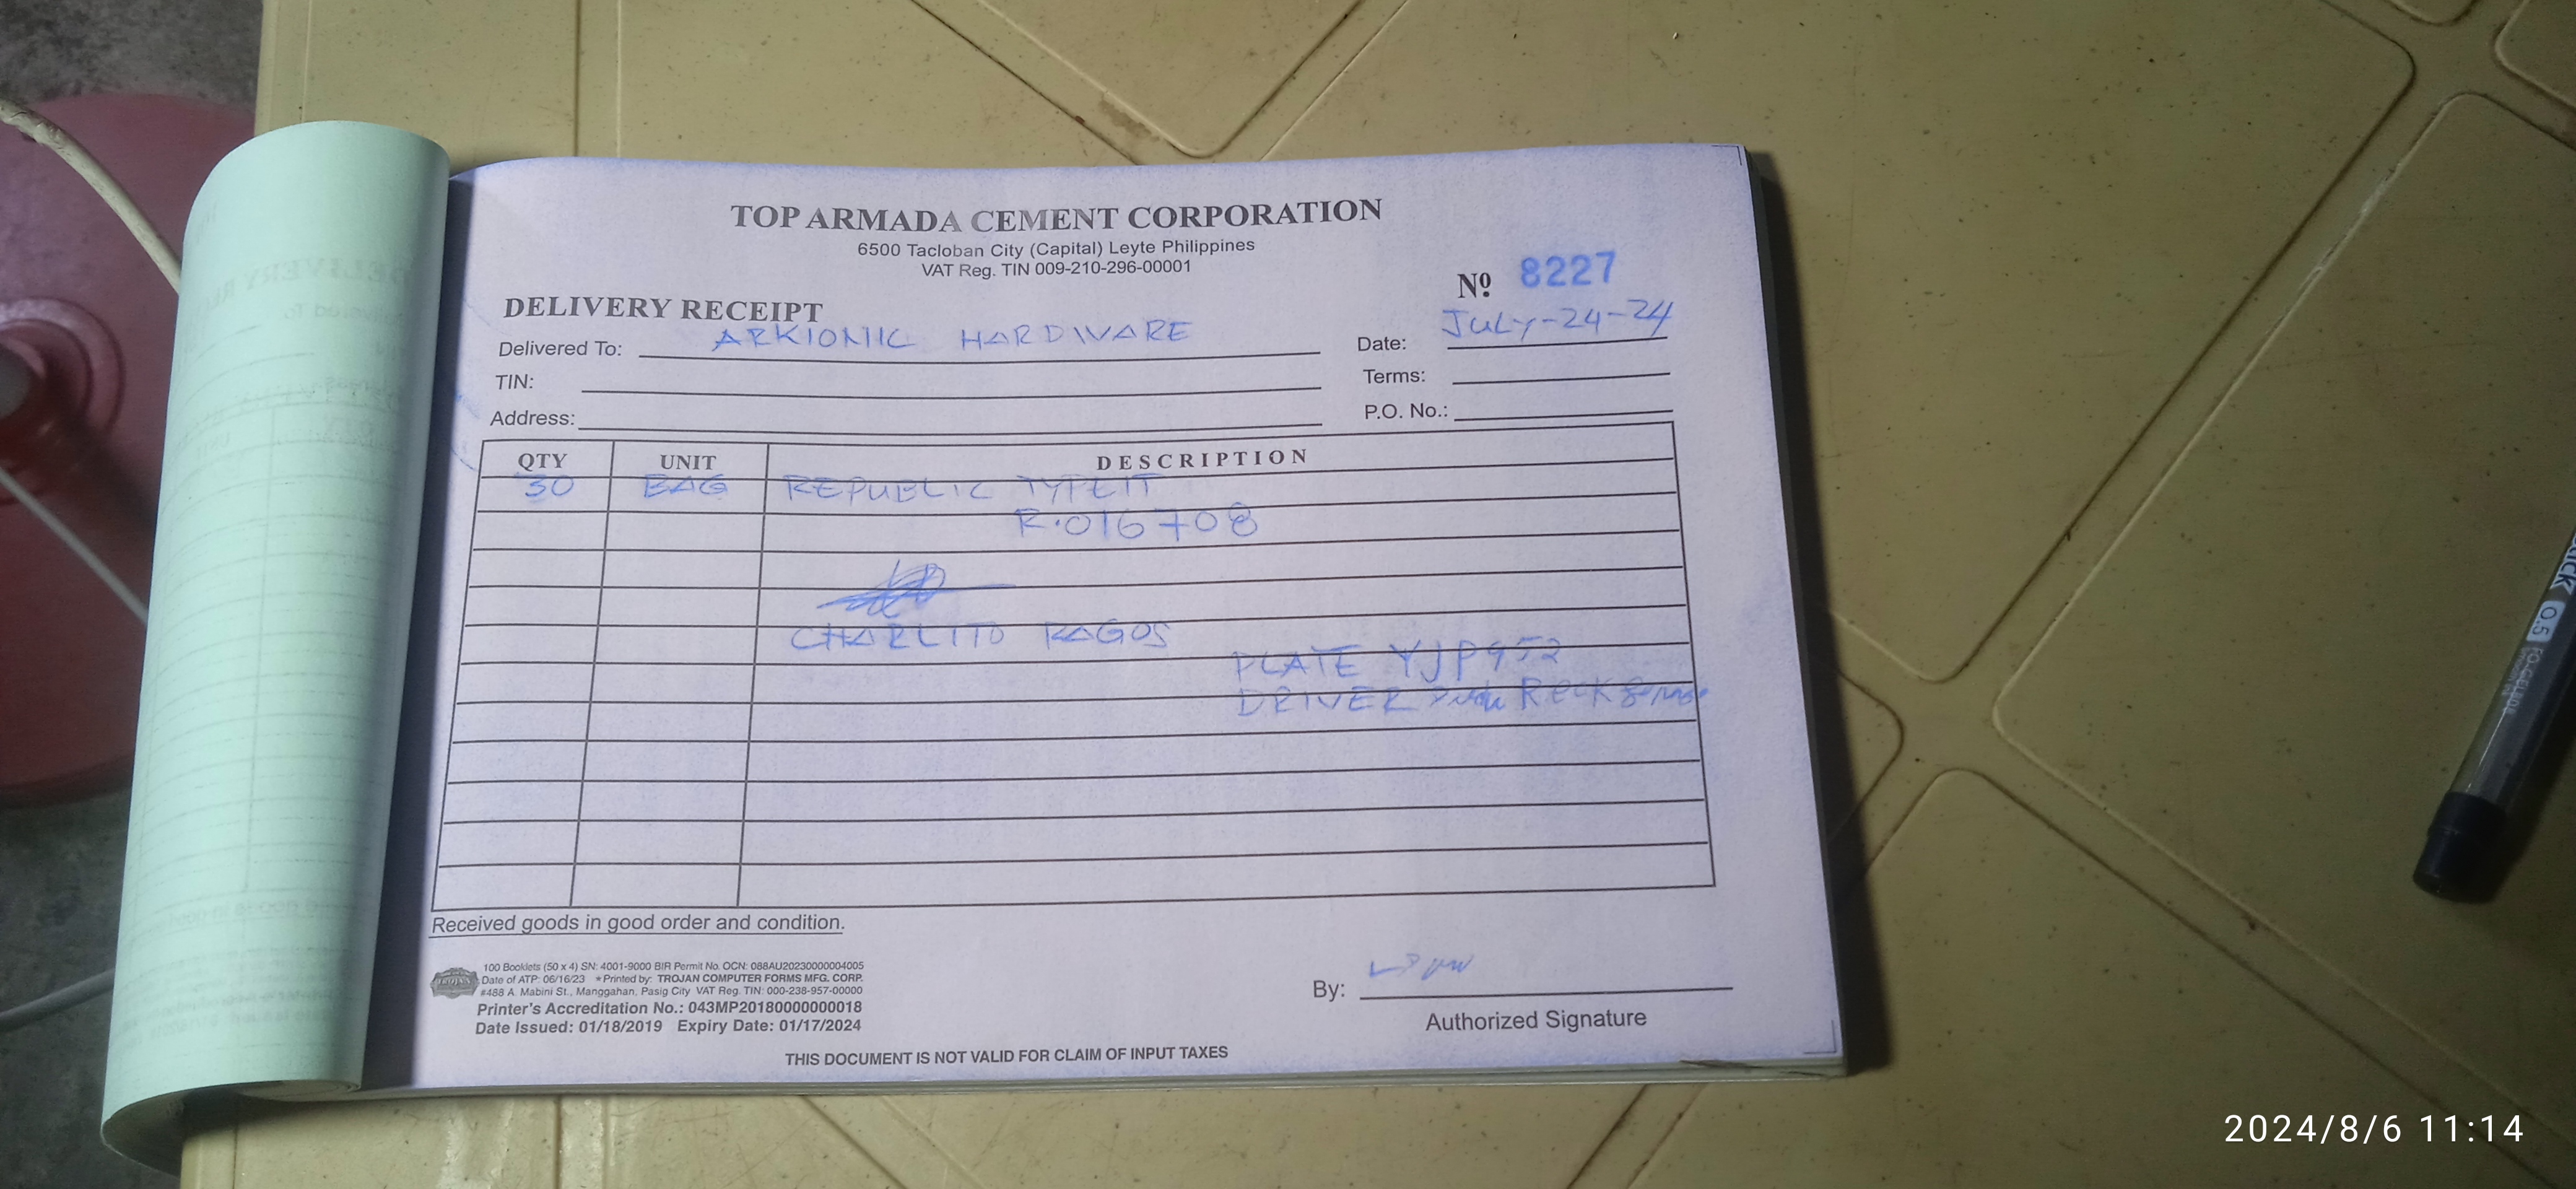 TOP ARMADA CEMENT CORPORATION
6500 Tacloban City (Capital) Leyte Philippines
VAT Reg. TIN 009-210-296-00001
Nº 8227
DELIVERY RECEIPT
Delivered To: ARKIONIC HARDWARE
Date: JULY-24-24
TIN:
Terms:
Address:
P.O. No.:
QTY UNIT DESCRIPTION
30 BAG REPUBLIC TYPE IT
R.016708
CHARLITO RAGOS
PLATE YJP952
DRIVER
Received goods in good order and condition.
100 Booklets (50 x 4) SN: 4001-9000 BIR Permit No. OCN: 088AU20230000004005
Date of ATP: 06/16/23 *Printed by: TROJAN COMPUTER FORMS MFG. CORP.
#488 A. Mabini St., Manggahan, Pasig City VAT Reg. TIN: 000-238-957-00000
Printer's Accreditation No.: 043MP20180000000018
Date Issued: 01/18/2019 Expiry Date: 01/17/2024
By:
Authorized Signature
THIS DOCUMENT IS NOT VALID FOR CLAIM OF INPUT TAXES
0.5
2024/8/6 11:14